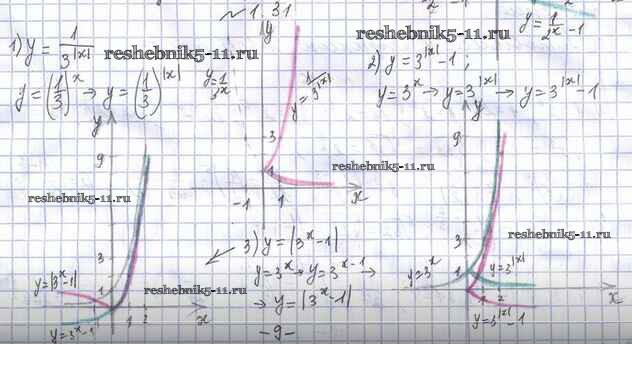 № 1.31
1) y = 1/3^|x|
y = (1/3)^x → y = (1/3)^|x|
y = 1/3^x
y = 1/3^|x|
y
3
1
-1 1 x
y = 1/2^x - 1
2) y = 3^|x| - 1;
y = 3^x → y = 3^|x| → y = 3^|x| - 1
reshebnik5-11.ru
reshebnik5-11.ru
reshebnik5-11.ru
reshebnik5-11.ru
reshebnik5-11.ru
reshebnik5-11.ru
y
9
3
1
1 2 x
y = |3^x - 1|
y = 3^x - 1
3) y = |3^x - 1|
y = 3^x → y = 3^x - 1 →
→ y = |3^x - 1|
-9-
y
9
3
1
1 2 x
y = 3^x
y = 3^|x|
y = 3^|x| - 1